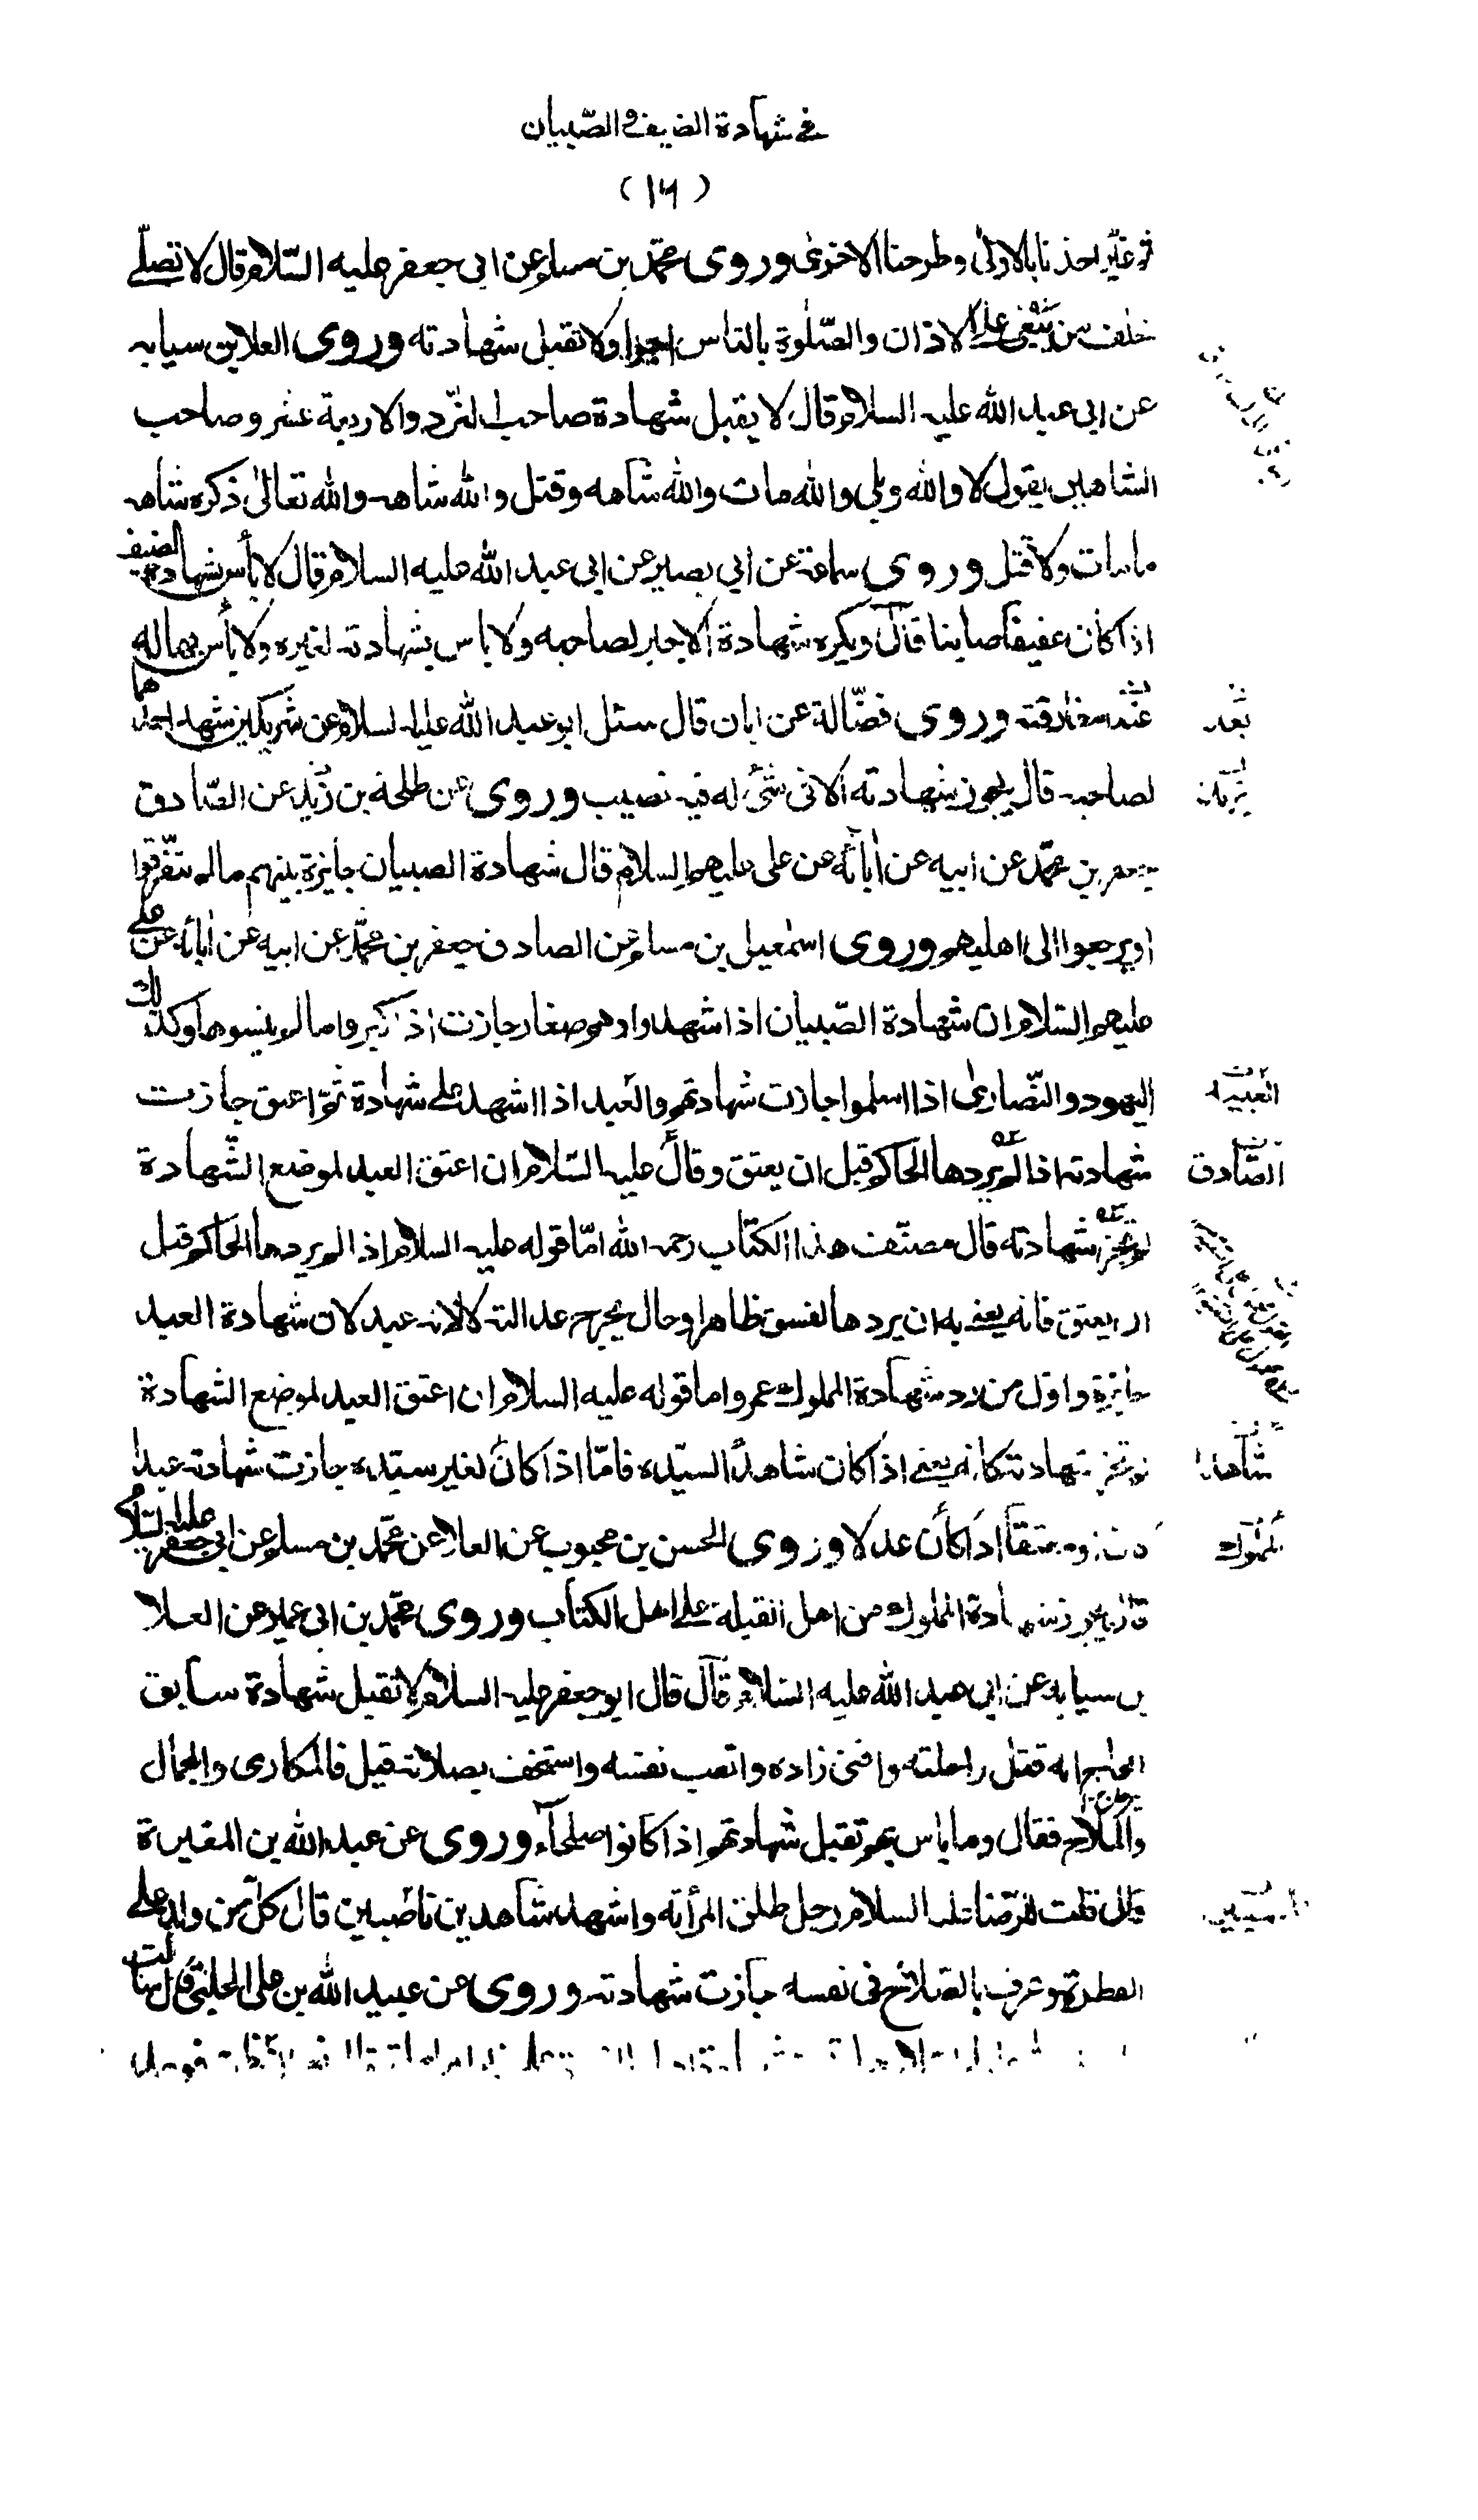 في شهادة الضيف و الصبيان
(١٦)
ثم غيّر اخذنا بالاولى وطرحنا الاخرى وروى محمّد بن مسلم عن ابى جعفر عليه السّلام قال لا تصلّ
خلف من يبتغى على الاذان والصّلوة بالناس اجرا ولا تقبل شهادته وروى العلا بن سيابه
عن ابى عبد الله عليه السلام قال لا يقبل شهادة صاحب النرّد والاربعة عشر وصاحب
الشاهين يقول لا والله وبلى والله مات والله شاهه وقتل والله شاهه والله تعالى ذكره شاهه
ما مات ولا قتل وروى سماعة عن ابي بصير عن ابى عبد الله عليه السلام قال لا بأس بشهادة الضيف
اذا كان عفيفا صاينا قال ويكره شهادة الاجير لصاحبه ولا باس بشهادته لغيره ولا بأس بها له
عند مفارقته وروى فضّالة عن ابان قال سئل ابو عبد الله عليه السلام عن شريكين شهد احدهما
بعد
لصاحبه قال يجوز شهادته الا فى شئ له فيه نصيب وروى عن طلحة بن زيد عن الصّادق
جعفر بن محمّد عن ابيه عن ابائه عن على عليهم السلام قال شهادة الصبيان جايزة بينهم ما لم يتفّرقوا
او يرجعوا الى اهليهم وروى اسمعيل بن مسلم عن الصادق جعفر بن محمّد عن ابيه عن ابائه عن على
عليهم السّلام ان شهادة الصّبيان اذا شهدوا وهم صغار جازت اذا كبروا ما لم ينسوها وكذلك
اليهود والنّصارى اذا اسلموا جازت شهادتهم والعبد اذا اشهد على شهادة ثمّ اعتق جازت
العبيد
شهادته اذا لم يردها الحاكم قبل ان يعتق وقال عليه السّلام ان اعتق العبد لموضع الشّهادة
الصّادق
لم تجز شهادته قال مصنّف هذا الكتاب رحمه الله امّا قوله عليه السلام اذا لم يردها الحاكم قبل
ان يعتق فانه يعنى به ان يردها لفسق ظاهر او حال يجرح عدالته لا لانه عبد لان شهادة العبد
جايزة واول من رد شهادة المملوك عمر واما قوله عليه السلام ان اعتق العبد لموضع الشهادة
لم تجز شهادته كانه يعنى اذا كان شاهدًا لسيّده فامّا اذا كان لغير سيّده جازت شهادته عبدا
شاهدا
كان او معتقا اذا كان عدلا وروى الحسن بن محبوب عن العلا عن محمّد بن مسلم عن ابى جعفر عليه السّلام
المملوك
قال يجوز شهادة المملوك من اهل القبلة على اهل الكتاب وروى محمّد بن ابى عمير عن العلا
بن سيابه عن ابى عبد الله عليه السّلام قال قال ابو جعفر عليه السلام لا تقبل شهادة سابق
الحاج انه قتل راحلته وافنى زاده واتعب نفسه واستخف بصلاته قيل فالمكارى والجمال
والملاح فقال وما باس بهم تقبل شهادتهم اذا كانوا صلحاء وروى عن عبد الله بن المغيرة
قال قلت للرّضا عليه السلام رجل طلق امرأته واشهد شاهدين ناصبيين قال كل من ولد على
الفطرة وعرف بالصّلاح فى نفسه جازت شهادته وروى عن عبيد الله بن على الحلبى قال سالت